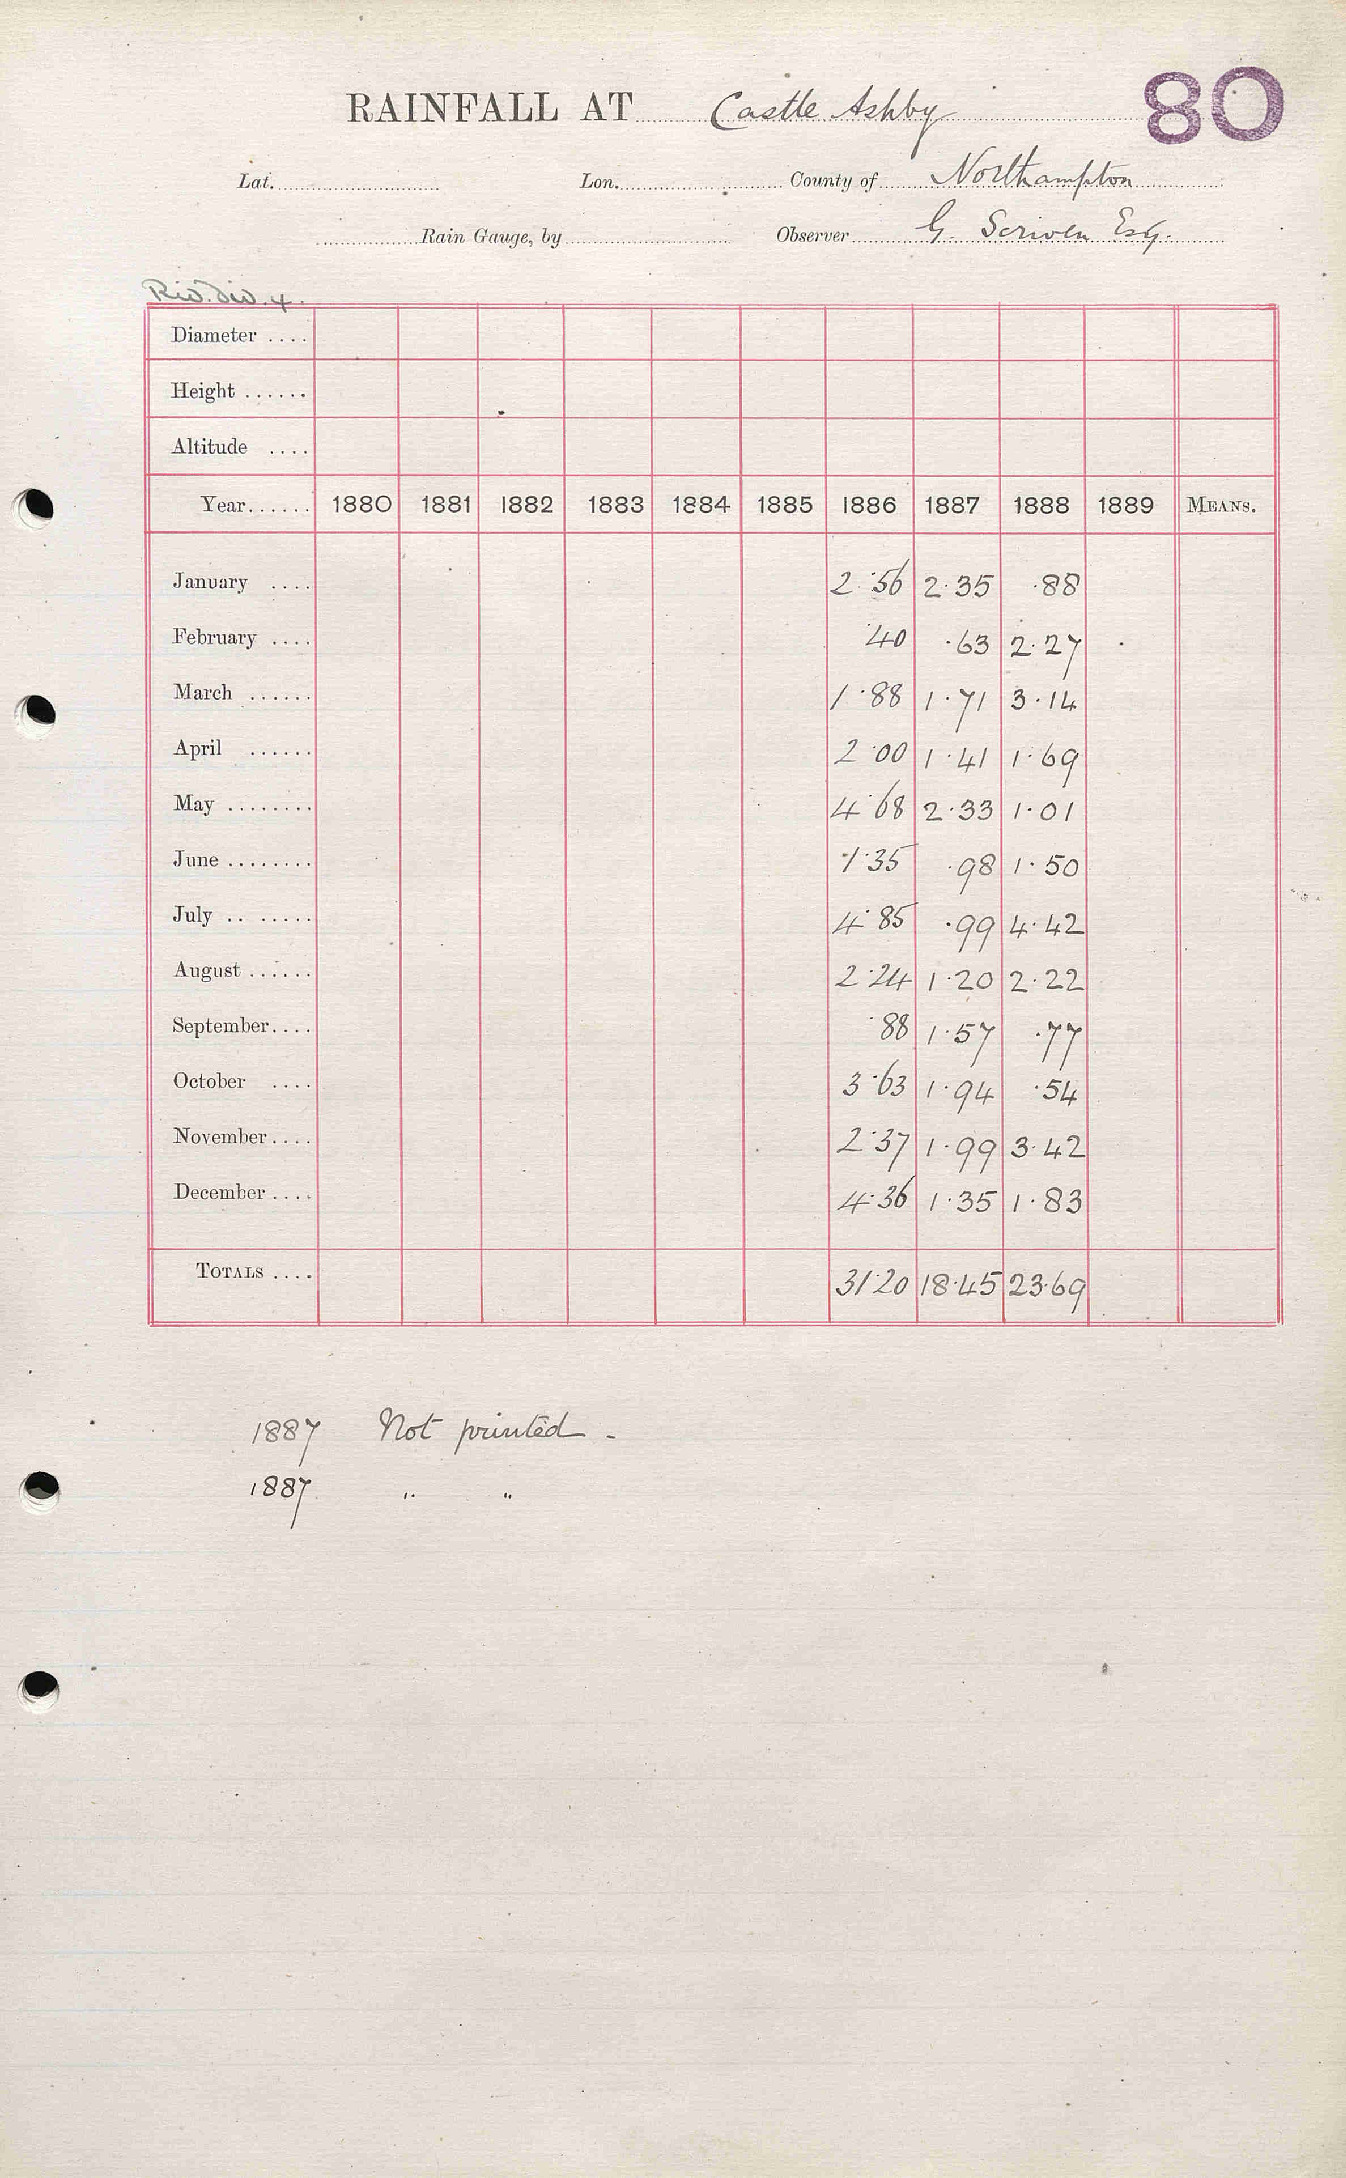 RAINFALL AT Castle Ashby 80
Lat. Lon. County of Northampton
Rain Gauge, by Observer G. Scriven Esq.
Riv. Div. 4.
Diameter ....
Height ......
Altitude ....
Year...... 1880 1881 1882 1883 1884 1885 1886 1887 1888 1889 MEANS.
January .... 2.56 2.35 .88
February .... .40 .63 2.27
March ...... 1.88 1.71 3.14
April ...... 2.00 1.41 1.69
May ........ 4.68 2.33 1.01
June ........ 1.35 .98 1.50
July .. ..... 4.85 .99 4.42
August ...... 2.24 1.20 2.22
September.... .88 1.57 .77
October .... 3.63 1.94 .54
November.... 2.37 1.99 3.42
December .... 4.36 1.35 1.83
TOTALS .... 31.20 18.45 23.69
1887 Not printed -
1887 " "